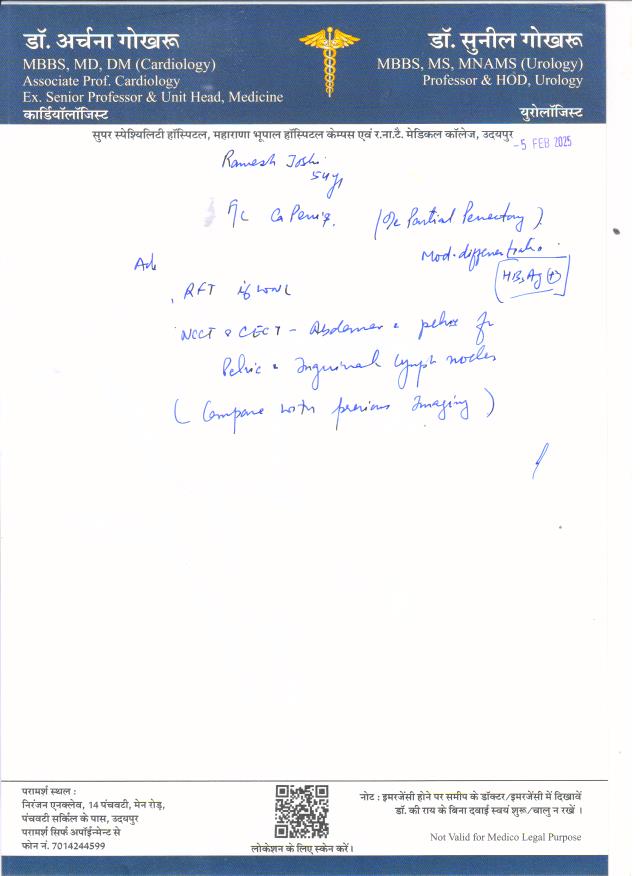 डॉ. अर्चना गोखरू
MBBS, MD, DM (Cardiology)
Associate Prof. Cardiology
Ex. Senior Professor & Unit Head, Medicine
कार्डियॉलॉजिस्ट
डॉ. सुनील गोखरू
MBBS, MS, MNAMS (Urology)
Professor & HOD, Urology
युरोलॉजिस्ट
सुपर स्पेश्यिलिटी हॉस्पिटल, महाराणा भूपाल हॉस्पिटल केम्पस एवं र.ना.टै. मेडिकल कॉलेज, उदयपुर
-5 FEB 2025
Ramesh Joshi
54y
Ca Penis. (O/c Partial Penectomy).
Mod. differentiation
HBsAg (+)
Adv
RFT if WNL
NCCT & CECT - Abdomen & pelvis for
Pelvic & Inguinal lymph nodes
(Compare with previous Imaging)
परामर्श स्थल :
निरंजन एनक्लेव, 14 पंचवटी, मेन रोड़,
पंचवटी सर्किल के पास, उदयपुर
परामर्श सिर्फ अपॉईन्मेन्ट से
फोन नं. 7014244599
लोकेशन के लिए स्केन करें।
नोट : इमरजेंसी होने पर समीप के डॉक्टर/इमरजेंसी में दिखावें
डॉ. की राय के बिना दवाई स्वयं शुरू/चालु न रखें ।
Not Valid for Medico Legal Purpose